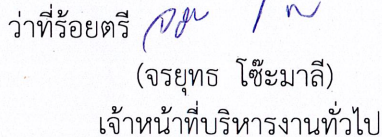 ว่าที่ร้อยตรี
(จรยุทธ โซ๊ะมาลี)
เจ้าหน้าที่บริหารงานทั่วไป